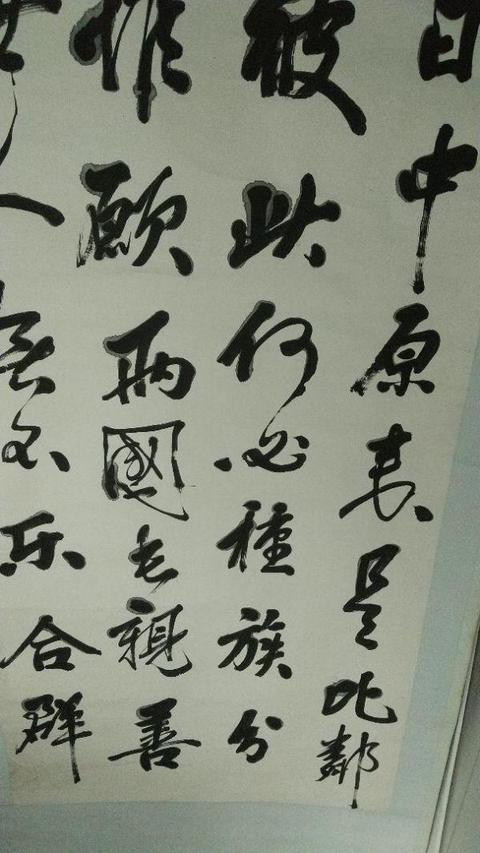 日中原来是比鄰
彼此何必種族分
惟願兩國長親善
世人不乐合群